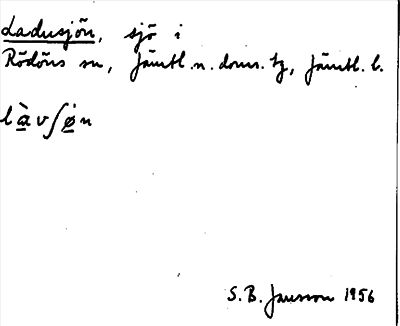 Ladusjön, sjö i
Rödöns sn, Jämtl. n. doms. tg, Jämtl. l.
làvʃø̇n
S. B. Jansson 1956